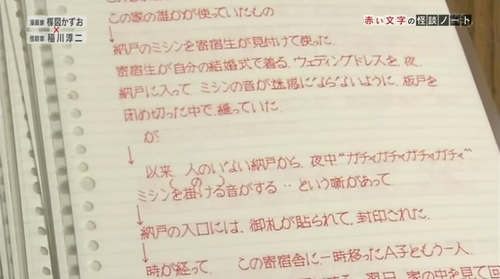 漫画家 楳図かずお
×
怪談家 稲川淳二
赤い文字の怪談ノート
この家の誰かが使っていたもの
↓
納戸のミシンを寄宿生が見付けて使った.
寄宿生が自分の結婚式で着る.ウェディングドレスを、夜
納戸に入って ミシンの音が迷惑にならないように、板戸を
閉め切った中で、縫っていた.
が.
↓
以来 人のいない納戸から、夜中"ガチィガチィガチィガチィ"
(の)
ミシンを掛ける音がする‥という噺があって
↓
納戸の入口には、御札が貼られて、封印された.
↓
時が経って この寄宿舎に一時移ったA子ともう一人.
翌日、家の中を見て回